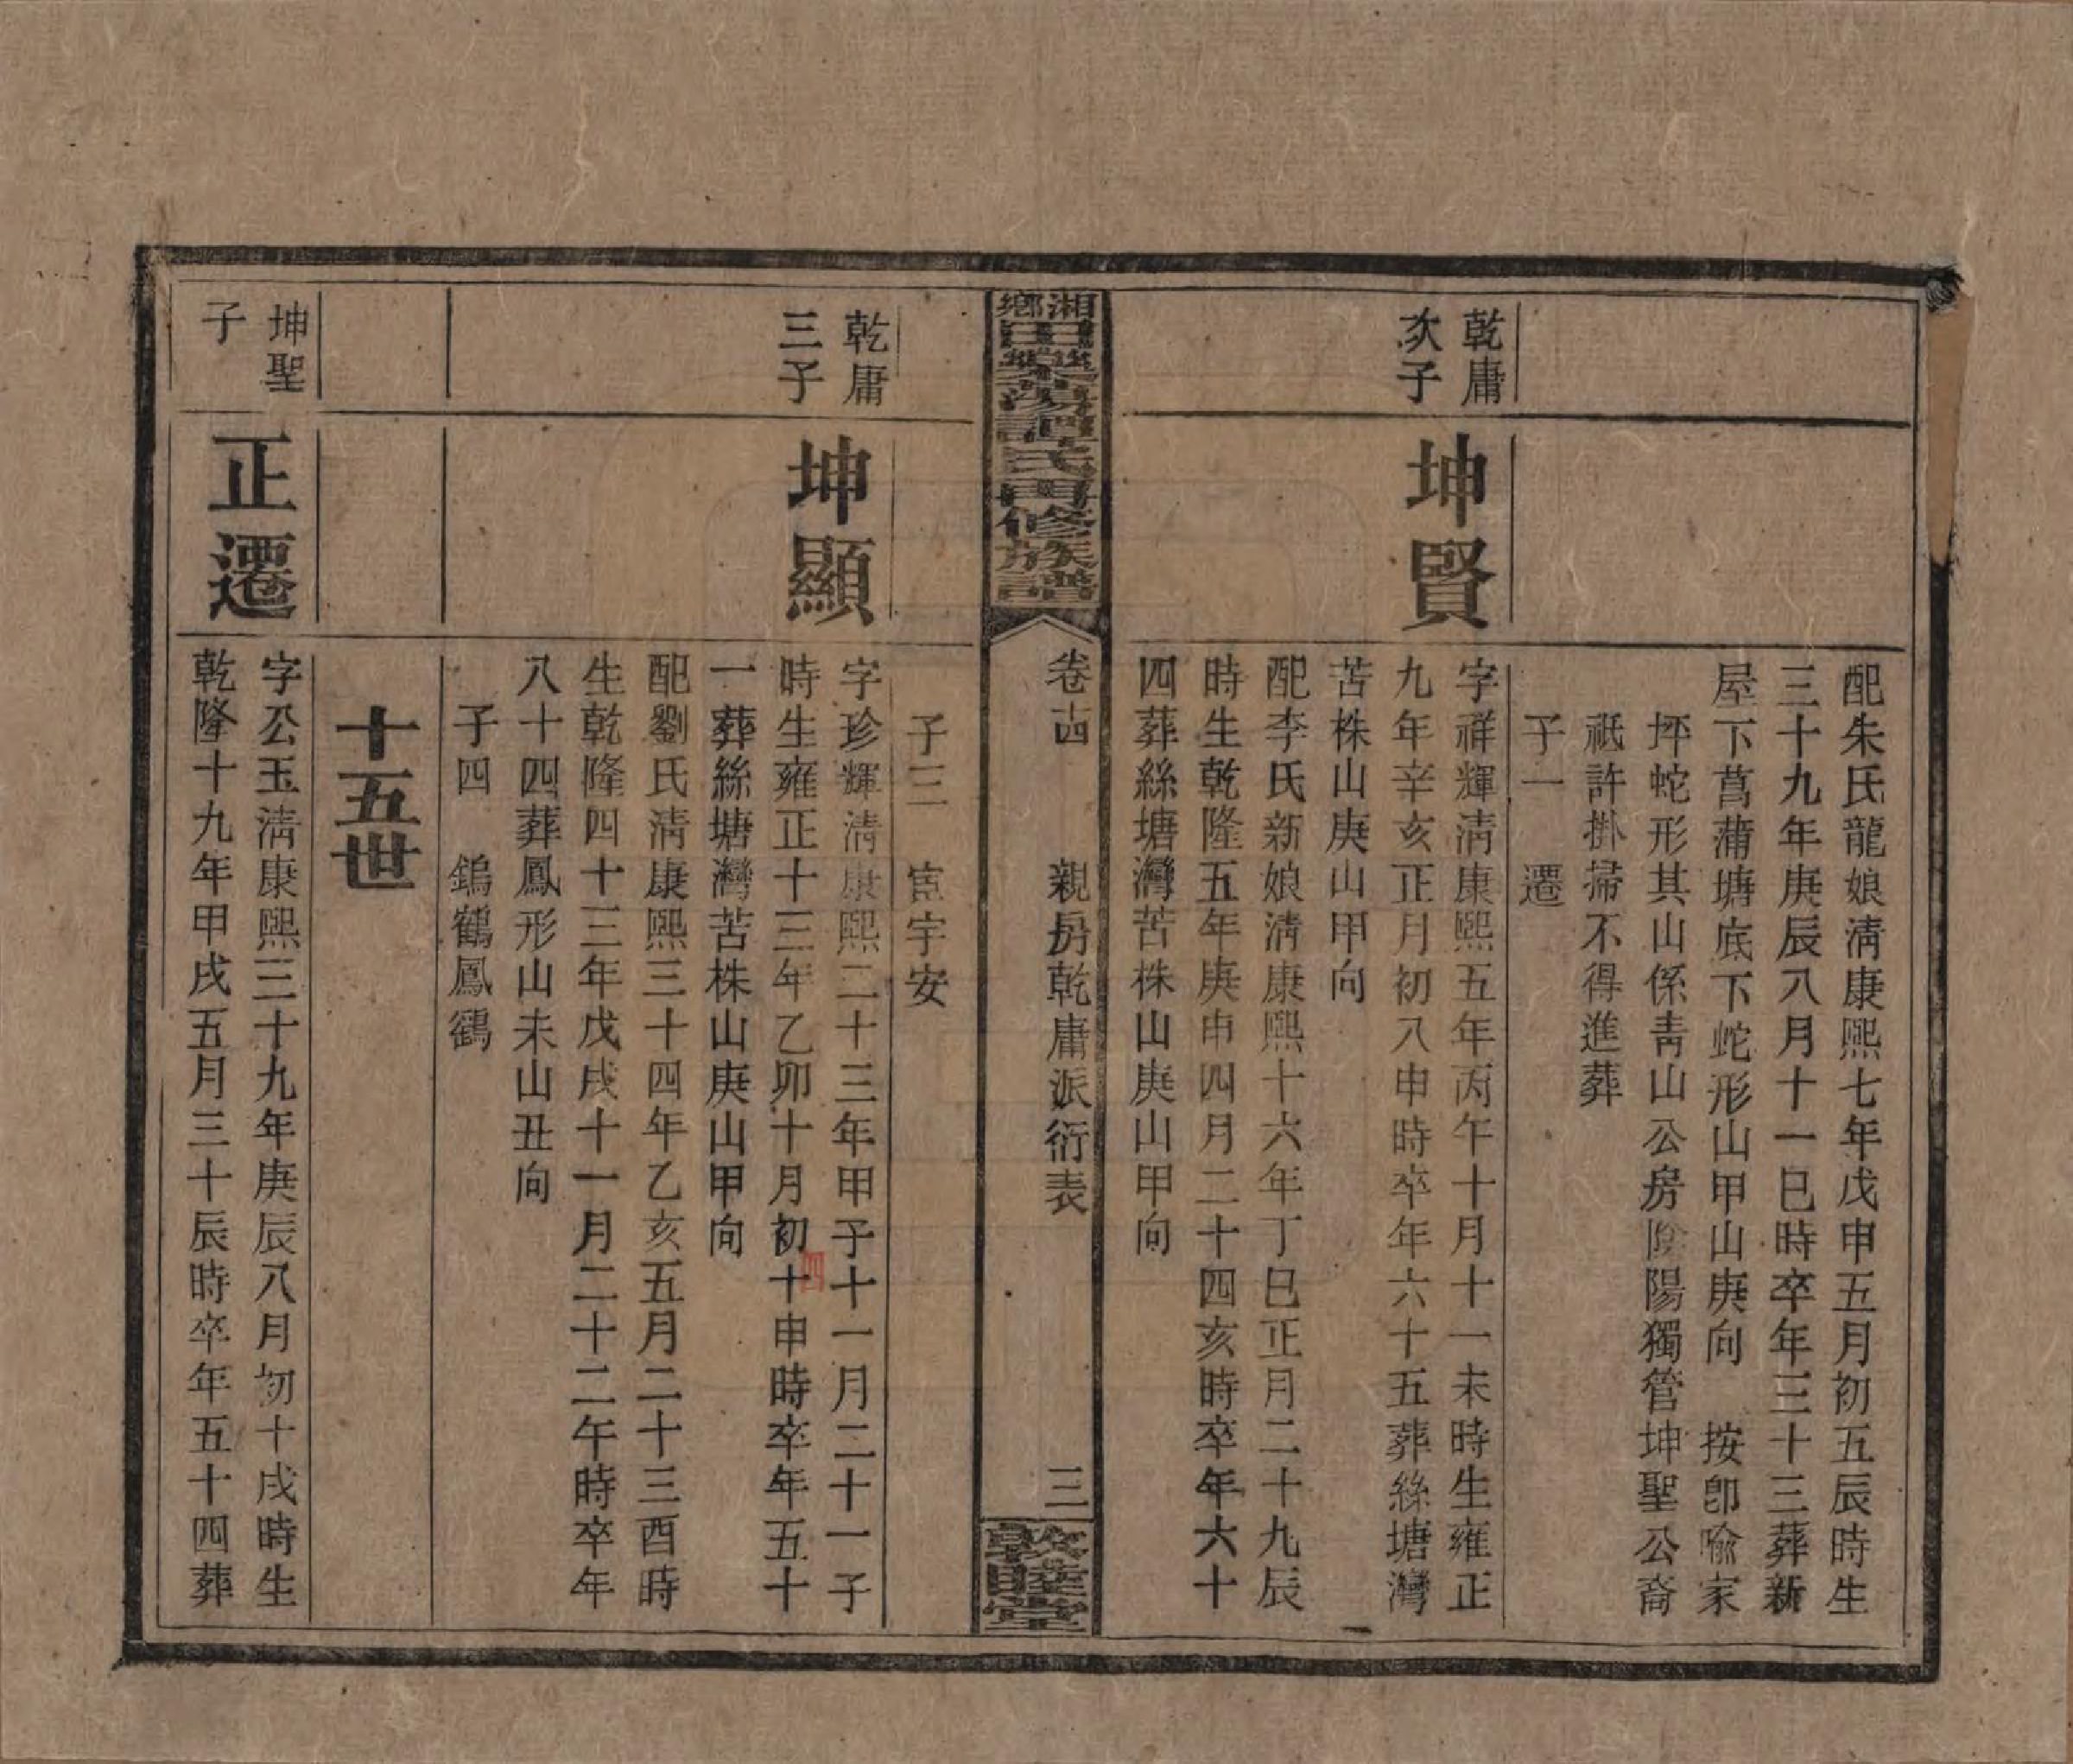 配朱氏龍娘淸康熙七年戊申五月初五辰時生
三十九年庚辰八月十一巳時卒年三十三葬新
屋下菖蒲塘底下蛇形山甲山庚向　按卽喩家
坪蛇形其山係靑山公房陰陽獨管坤聖公裔
祇許掛掃不得進葬
子一　遷
乾庸
次子
坤賢
字祥輝淸康熙五年丙午十月十一未時生雍正
九年辛亥正月初八申時卒年六十五葬絲塘灣
苦株山庚山甲向
配李氏新娘淸康熙十六年丁巳正月二十九辰
時生乾隆五年庚申四月二十四亥時卒年六十
四葬絲塘灣苦株山庚山甲向
湘鄉田心滎陽譚氏四修族譜
卷十四　親房乾庸派衍表　三
敦睦堂
子三　宦宇安
乾庸
三子
坤顯
字珍輝淸康熙二十三年甲子十一月二十一子
時生雍正十三年乙卯十月初十申時卒年五十
一葬絲塘灣苦株山庚山甲向
配劉氏淸康熙三十四年乙亥五月二十三酉時
生乾隆四十三年戊戌十一月二十二午時卒年
八十四葬鳳形山未山丑向
子四　鴿鶴鳳鶴
十五世
坤聖
子
正遷
字公玉淸康熙三十九年庚辰八月初十戌時生
乾隆十九年甲戌五月三十辰時卒年五十四葬